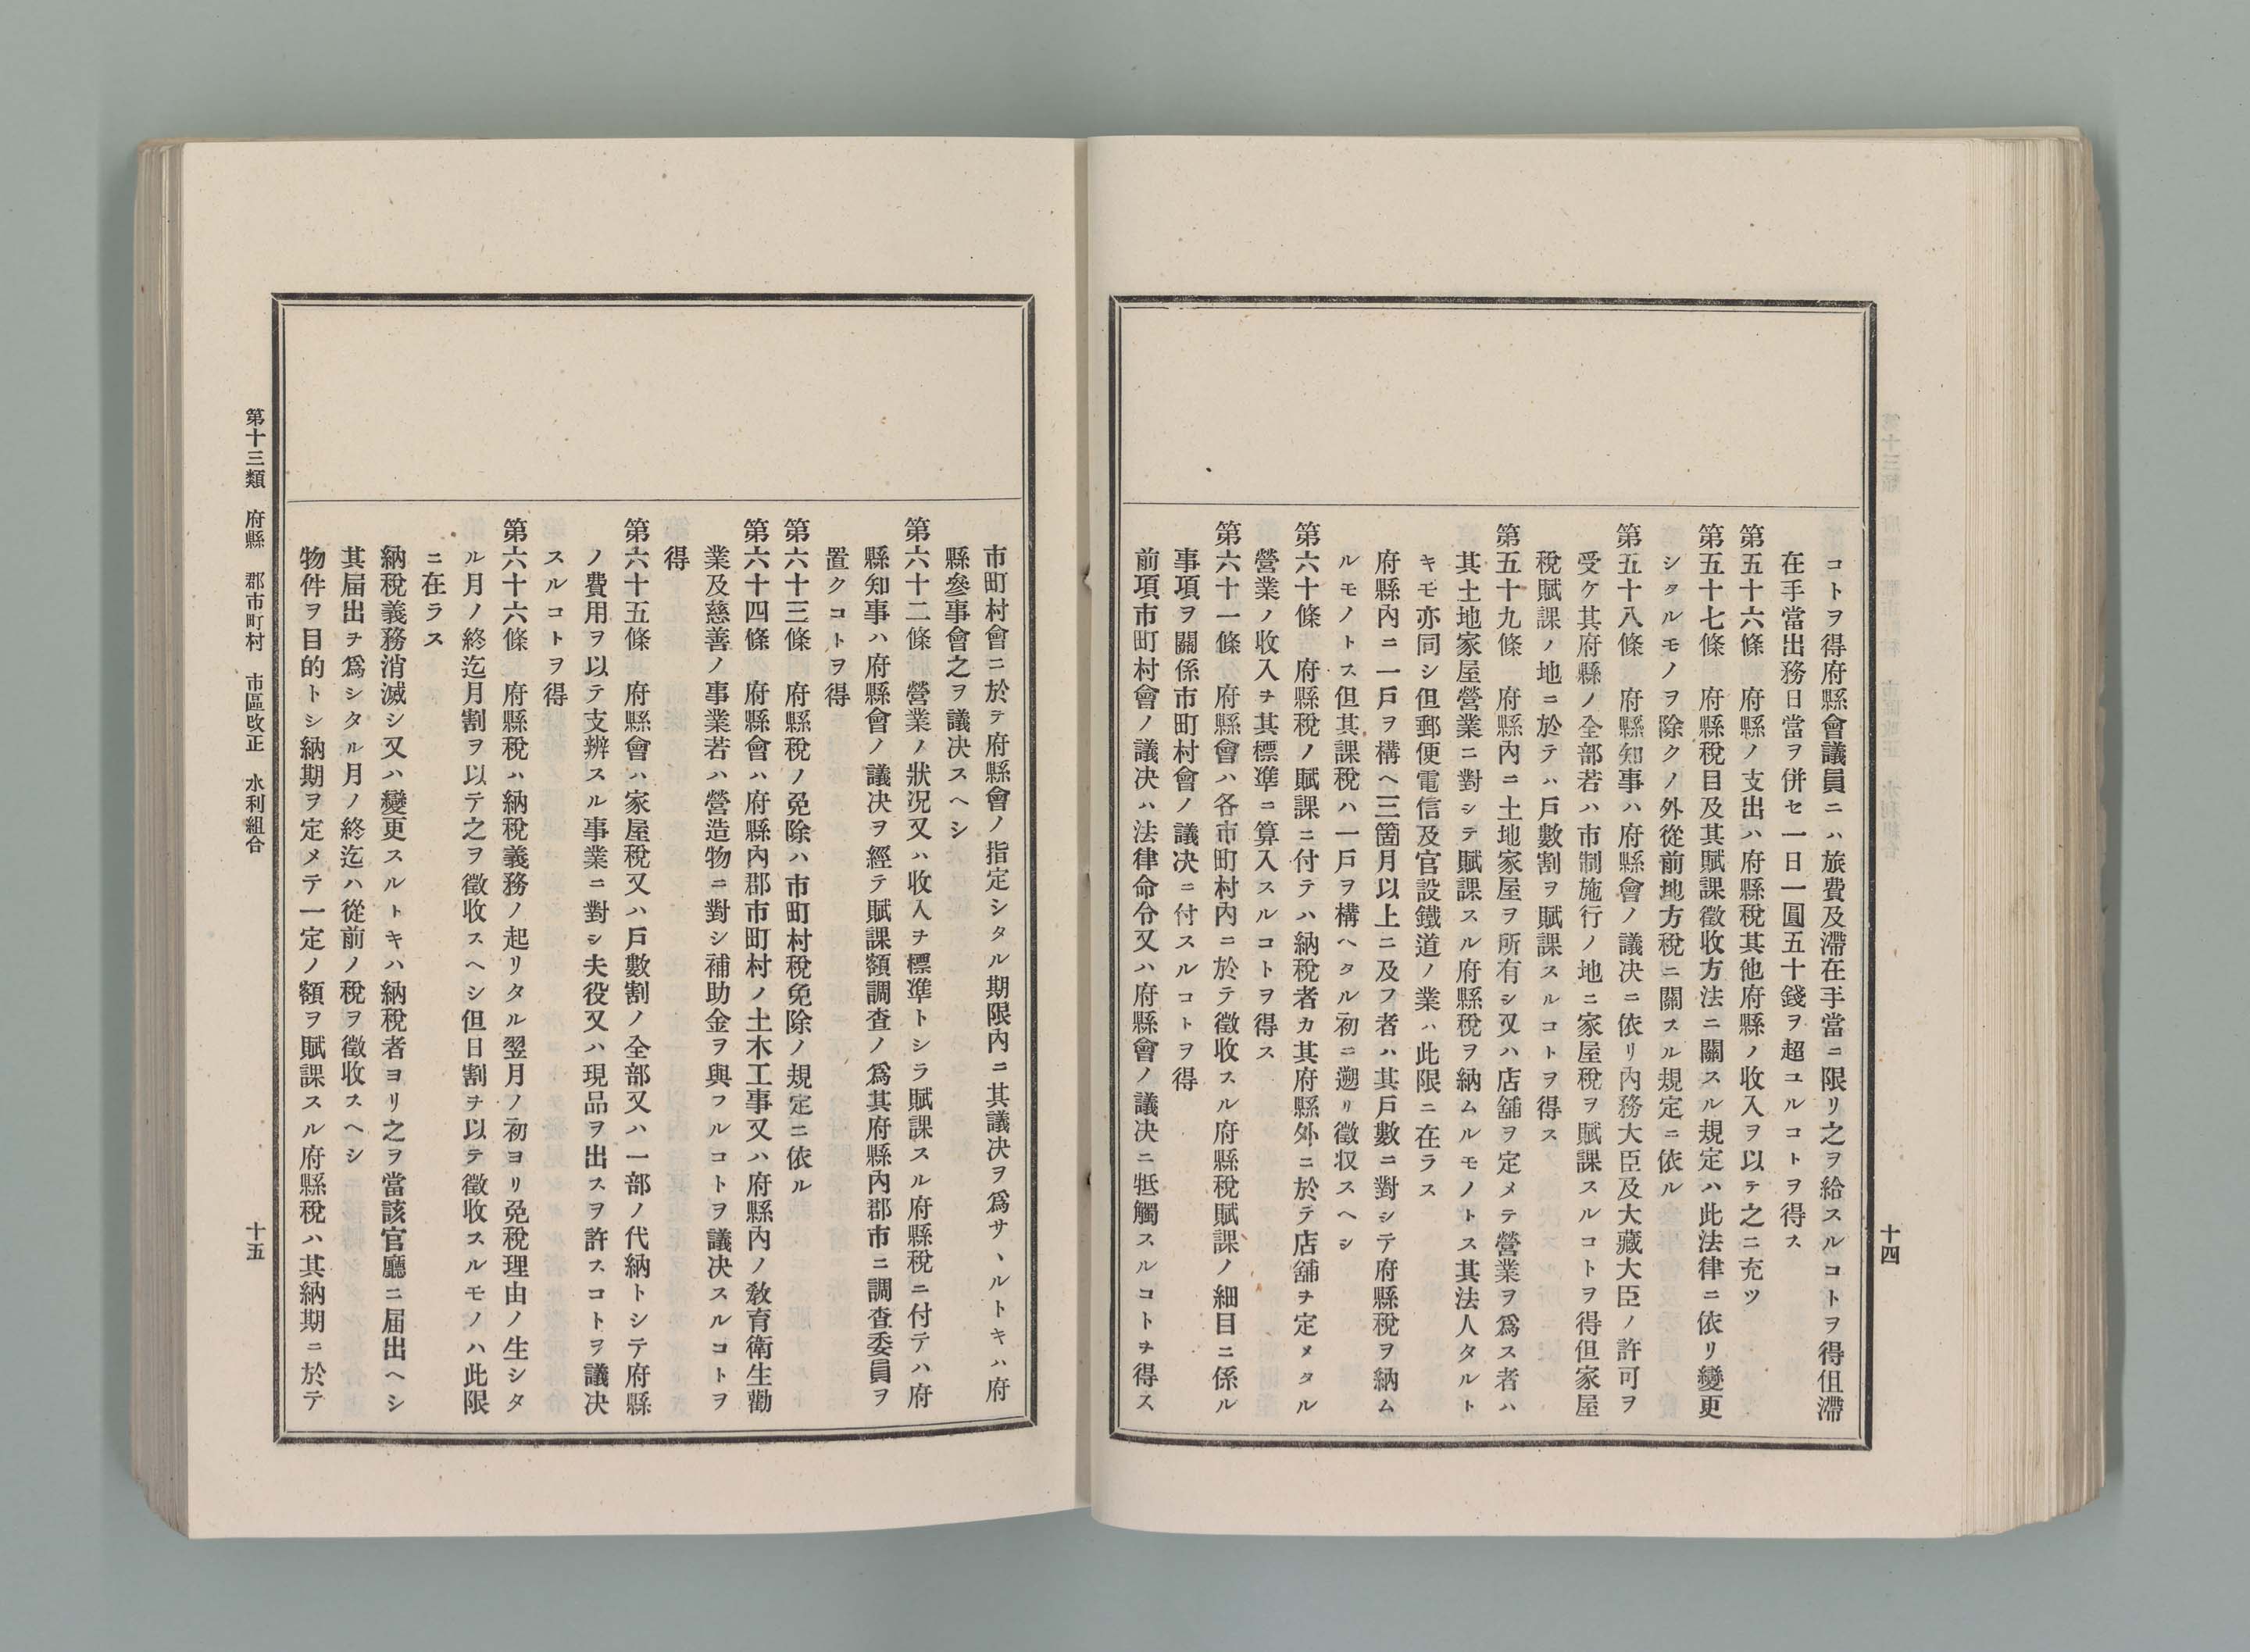 コトヲ得府縣會議員ニハ旅費及滯在手當ニ限リ之ヲ給スルコトヲ得伹滯
在手當出務日當ヲ併セ一日一圓五十錢ヲ超ユルコトヲ得ス
第五十六條　府縣ノ支出ハ府縣稅其他府縣ノ收入ヲ以テ之ニ充ツ
第五十七條　府縣稅目及其賦課徵收方法ニ關スル規定ハ此法律ニ依リ變更
シタルモノヲ除クノ外從前地方稅ニ關スル規定ニ依ル
第五十八條　府縣知事ハ府縣會ノ議决ニ依リ內務大臣及大藏大臣ノ許可ヲ
受ケ其府縣ノ全部若ハ市制施行ノ地ニ家屋稅ヲ賦課スルコトヲ得但家屋
稅賦課ノ地ニ於テハ戶數割ヲ賦課スルコトヲ得ス
第五十九條　府縣內ニ土地家屋ヲ所有シ又ハ店舖ヲ定メテ營業ヲ爲ス者ハ
其土地家屋營業ニ對シテ賦課スル府縣稅ヲ納ムルモノトス其法人タルト
キモ亦同シ但郵便電信及官設鐵道ノ業ハ此限ニ在ラス
府縣內ニ一戶ヲ構ヘ三箇月以上ニ及フ者ハ其戶數ニ對シテ府縣稅ヲ納ム
ルモノトス但其課稅ハ一戶ヲ構ヘタル初ニ遡リ徵収スヘシ
第六十條　府縣稅ノ賦課ニ付テハ納稅者カ其府縣外ニ於テ店舖ヲ定メタル
營業ノ收入ヲ其標準ニ算入スルコトヲ得ス
第六十一條　府縣會ハ各市町村內ニ於テ徵收スル府縣稅賦課ノ細目ニ係ル
事項ヲ關係市町村會ノ議决ニ付スルコトヲ得
前項市町村會ノ議决ハ法律命令又ハ府縣會ノ議决ニ牴觸スルコトヲ得ス
十四
市町村會ニ於テ府縣會ノ指定シタル期限內ニ其議决ヲ爲サヽルトキハ府
縣參事會之ヲ議决スヘシ
第六十二條　營業ノ狀况又ハ收入ヲ標準トシラ賦課スル府縣稅ニ付テハ府
縣知事ハ府縣會ノ議决ヲ經テ賦課額調查ノ爲其府縣內郡市ニ調查委員ヲ
置クコトヲ得
第六十三條　府縣稅ノ免除ハ市町村稅免除ノ規定ニ依ル
第六十四條　府縣會ハ府縣內郡市町村ノ土木工事又ハ府縣內ノ敎育衛生勸
業及慈善ノ事業若ハ營造物ニ對シ補助金ヲ與フルコトヲ議决スルコトヲ
得
第六十五條　府縣會ハ家屋稅又ハ戶數割ノ全部又ハ一部ノ代納トシテ府縣
ノ費用ヲ以テ支辨スル事業ニ對シ夫役又ハ現品ヲ出スヲ許スコトヲ議决
スルコトヲ得
第六十六條　府縣稅ハ納稅義務ノ起リタル翌月ノ初ヨリ免稅理由ノ生シタ
ル月ノ終迄月割ヲ以テ之ヲ徵收スヘシ但日割ヲ以テ徵收スルモノハ此限
ニ在ラス
納稅義務消滅シ又ハ變更スルトキハ納稅者ヨリ之ヲ當該官廳ニ届出ヘシ
其届出ヲ爲シタル月ノ終迄ハ從前ノ稅ヲ徵收スヘシ
物件ヲ目的トシ納期ヲ定メテ一定ノ額ヲ賦課スル府縣稅ハ其納期ニ於テ
第十三類　府縣　郡市町村　市區改正　水利組合
十五